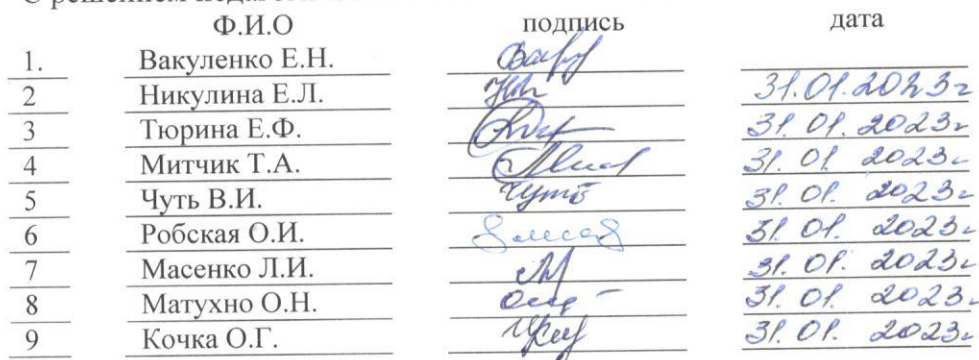 С решением педагогич
Ф.И.О подпись дата
1. Вакуленко Е.Н.
2 Никулина Е.Л. 31.01.2023г
3 Тюрина Е.Ф. 31.01.2023г
4 Митчик Т.А. 31.01 2023г
5 Чуть В.И. Чуть 31.01. 2023г
6 Робская О.И. 31.01. 2023г
7 Масенко Л.И. 31.01. 2023г
8 Матухно О.Н. 31.01. 2023г
9 Кочка О.Г. 31.01. 2023г